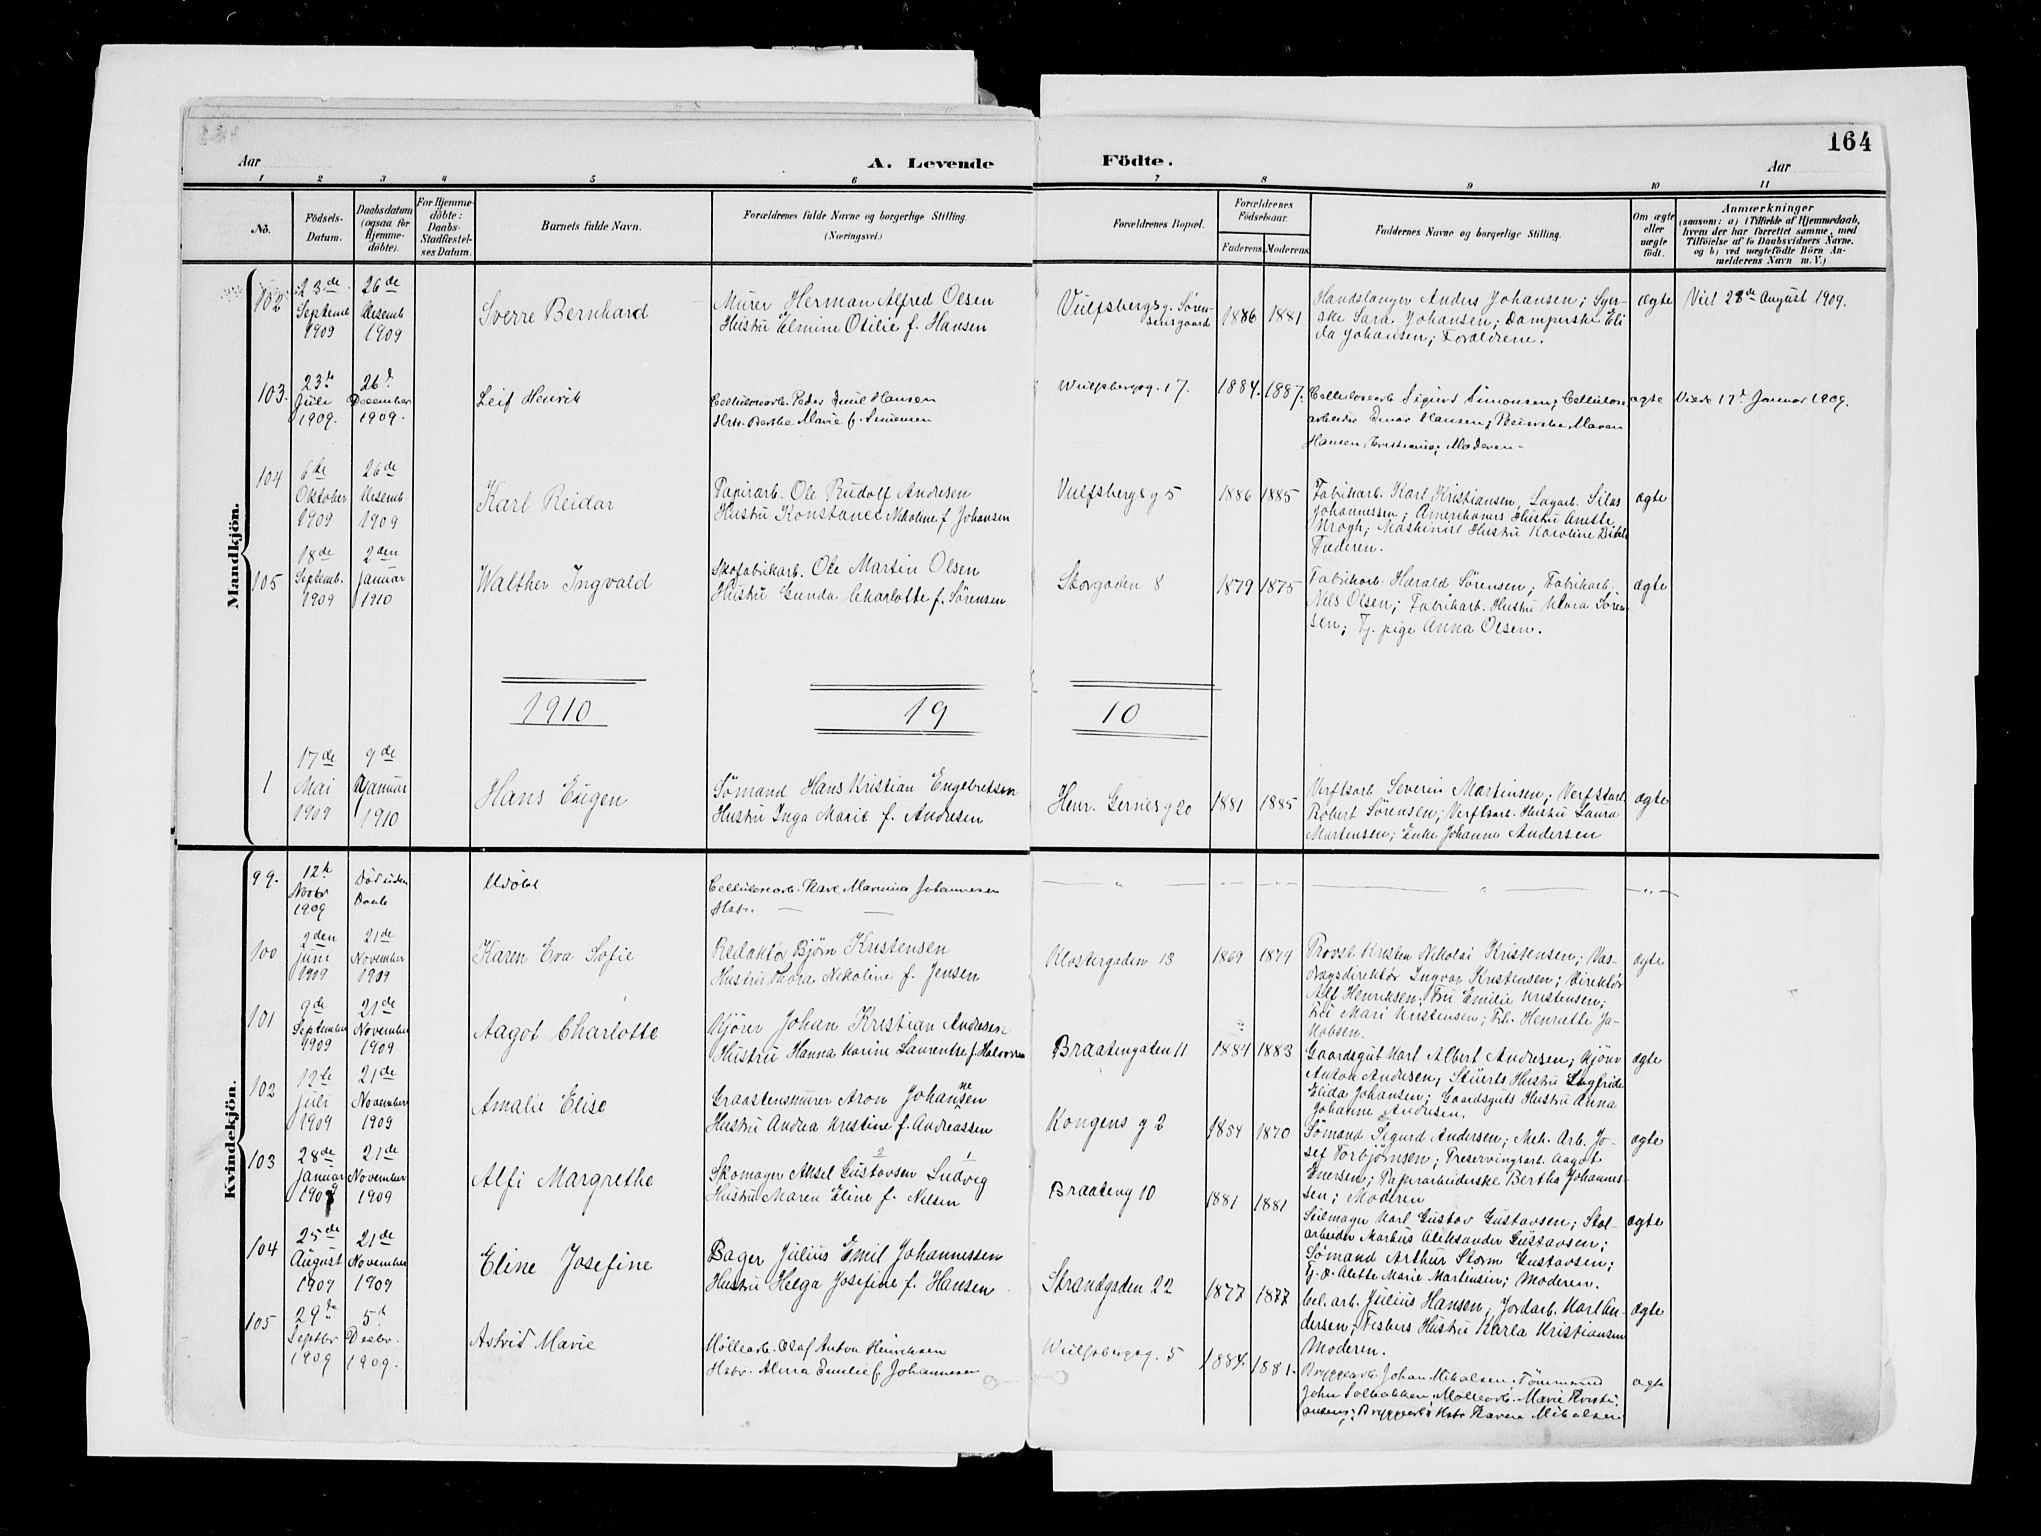 164
Aar
A. Levende
Födte.
Aar
1 2 3 4 5 6 7 8 9 10 11
No.
Födsels-
Datum.
Daabsdatum
(ogsaa for
Hjemme-
döbte).
For Hjemme-
döbte:
Daabs-
Stadfæstel-
ses Datum.
Barnets fulde Navn.
Forældrenes fulde Navne og borgerlige Stilling.
(Næringsvei.)
Forældrenes Bopæl.
Forældrenes
Födselsaar.
Faderens. Moderens.
Faddernes Navne og borgerlige Stilling.
Om ægte
eller
uægte
födt.
Anmærkninger
(saasom: a) i Tilfælde af Hjemmedaab,
hvem der har forrettet samme, med
Tilföielse af to Daabsvidners Navne,
og b) ved uægtefödte Börn An-
melderens Navn m. V.)
Mandkjön.
102
23de
Septemb
1909
26de
Desemb
1909
Sverre Bernhard
Murer Herman Alfred Olsen
Hustru Elmine Otilie f. Hansen
Vulfsbergsg. Sören-
sensgaard
1886 1881
Handslanger Anders Johansen; Syer-
ske Sara Johansen; Damperske Eli
da Johansen; Forældrene.
ægte
Viet 28de August 1909.
103.
23de
Juli
1909.
26d.
December
1909.
Leif Henrik
Cellulosearb. Peder Emil Hansen
Hstr. Berthe Marie f. Simensen
Wulfsbergsg. 17.
1884. 1887.
Cellulosearb. Sigurd Simonsen; Cellulose
arbeider Einar Hansen; Maren
Hansen, Kristiania; Moderen-
ægte
Viede 17d Januar 1909.
104
6te
Oktober
1909
26de
Desemb
1909
Karl Reidar
Papirarb. Ole Rudolf Andresen
Hustru Konstance Nikoline f Johansen
Vulfsbergs g 5
1886 1885
Fabrikarb. Karl Kristiansen, Sagarb. Silas
Johannessen; Amerikaners Hustru Anette
Krogh; Maskinist Hustru Karoline
Faderen.
ægte
105
18de
Septemb.
1909
2den
Januar
1910
Walther Ingvald
Skofabrikarb. Ole Martin Olsen
Hustru Gunda Charlotte f. Sörensen
Skovgaden 8
1879 1875
Fabrikarb. Harald Sörensen; Fabrikarb.
Nils Olsen; Fabrikarb. Hustru Klara Sören-
sen; Tj. pige Anna Olsen.
ægte
1910
19
10
1
17de
Mai
1909
9de
Januar
1910
Hans Eugen
Sömand Hans Kristian Engebretsen
Hustru Inga Marie f. Andresen
Henr. Gernersg 20
1881 1885
Verftsarb. Severin Martinsen; Verftsarb.
Robert Sörensen; Verftsarb. Hustru Laura
Martensen; Enke Johanne Andersen
ægte
Kvindekjön.
99.
12te
Novbr
1909
Död uden
Daab
Udöbt
Cellulosearb. Karl Marinius Johannesen
Hstr.
100
2den
Juni
1909
21de
November
1909
Karen Eva Sofie
Redaktör Björn Kristensen
Hustru Thora Nikoline f. Jensen
Klostergaden 13
1869 1874
Provst Kristen Nikolai Kristensen; Vas-
dragsdirektör Ingvar Kristensen; Direktör
Alf Henriksen; Fru Emilie Kristensen;
Fru Mari Kristensen; Frk. Henriette Ja-
kobsen.
ægte
101
9de
September
1909
21de
November
1909
Aagot Charlotte
Kjörer Johan Kristian Andresen
Hustru Hanna Karine Laurentse f. Halvorsen
Braatengaden 11
1884 1883
Gaardsgut Karl Albert Andresen; Kjörer
Anton Andresen; Stuerts Hustru Sagfride
Elida Johansen; Gaardsguts Hustru Anna
Johanne Andresen.
ægte
102
12te
Juli
1909
21de
November
1909
Amalie Elise
Graastensmurer Aron Johannesen
Hustru Andrea Kristine f. Andreassen
Kongens g 2
1854 1870
Sömand Sigurd Andersen; Mek. Arb. Jo-
sef Torbjörnsen; Preservingsarb. Aagot
Enersen; Papirarbeiderske Bertha Johannes-
sen; Moderen
ægte
103
28de
Januar
1909
21de
November
1909
Alfi Margrethe
Skomager Aksel Gustavsen Ludvig
Hustru Maren Eline f. Nilsen
Braateng 10
1881 1881
Seilmager Karl Gustav Gustavsen; Stol-
arbeider Markus Aleksander Gustavsen;
Sömand Arthur Storm Gustavsen;
Tj. p. Alette Marie Martinsen; Moderen.
ægte
104
25de
August
1909
21de
November
1909
Eline Josefine
Bager Julius Emil Johannessen
Hustru Helga Josefine f. Hansen
Strandgaden 22
1877 1877
Cel. arb. Julius Hansen; Jordarb. Karl An-
dersen; Fiskers Hustru Karla Kristiansen
Moderen.
ægte
105
29de
Septbr
1909
5d
Desbr.
1909.
Astrid Marie
Möllearb. Olaf Anton Henriksen
Hstr. Alma Emilie f. Johannesen
Wulfsbergsg. 5
1884. 1881.
Bryggearb. Johan Mikalsen; Tömmermd
John Solbakken, Möllearb. Marie Kristi-
ansens; Bryggearb. Hstr Karen Mikalsen
ægte